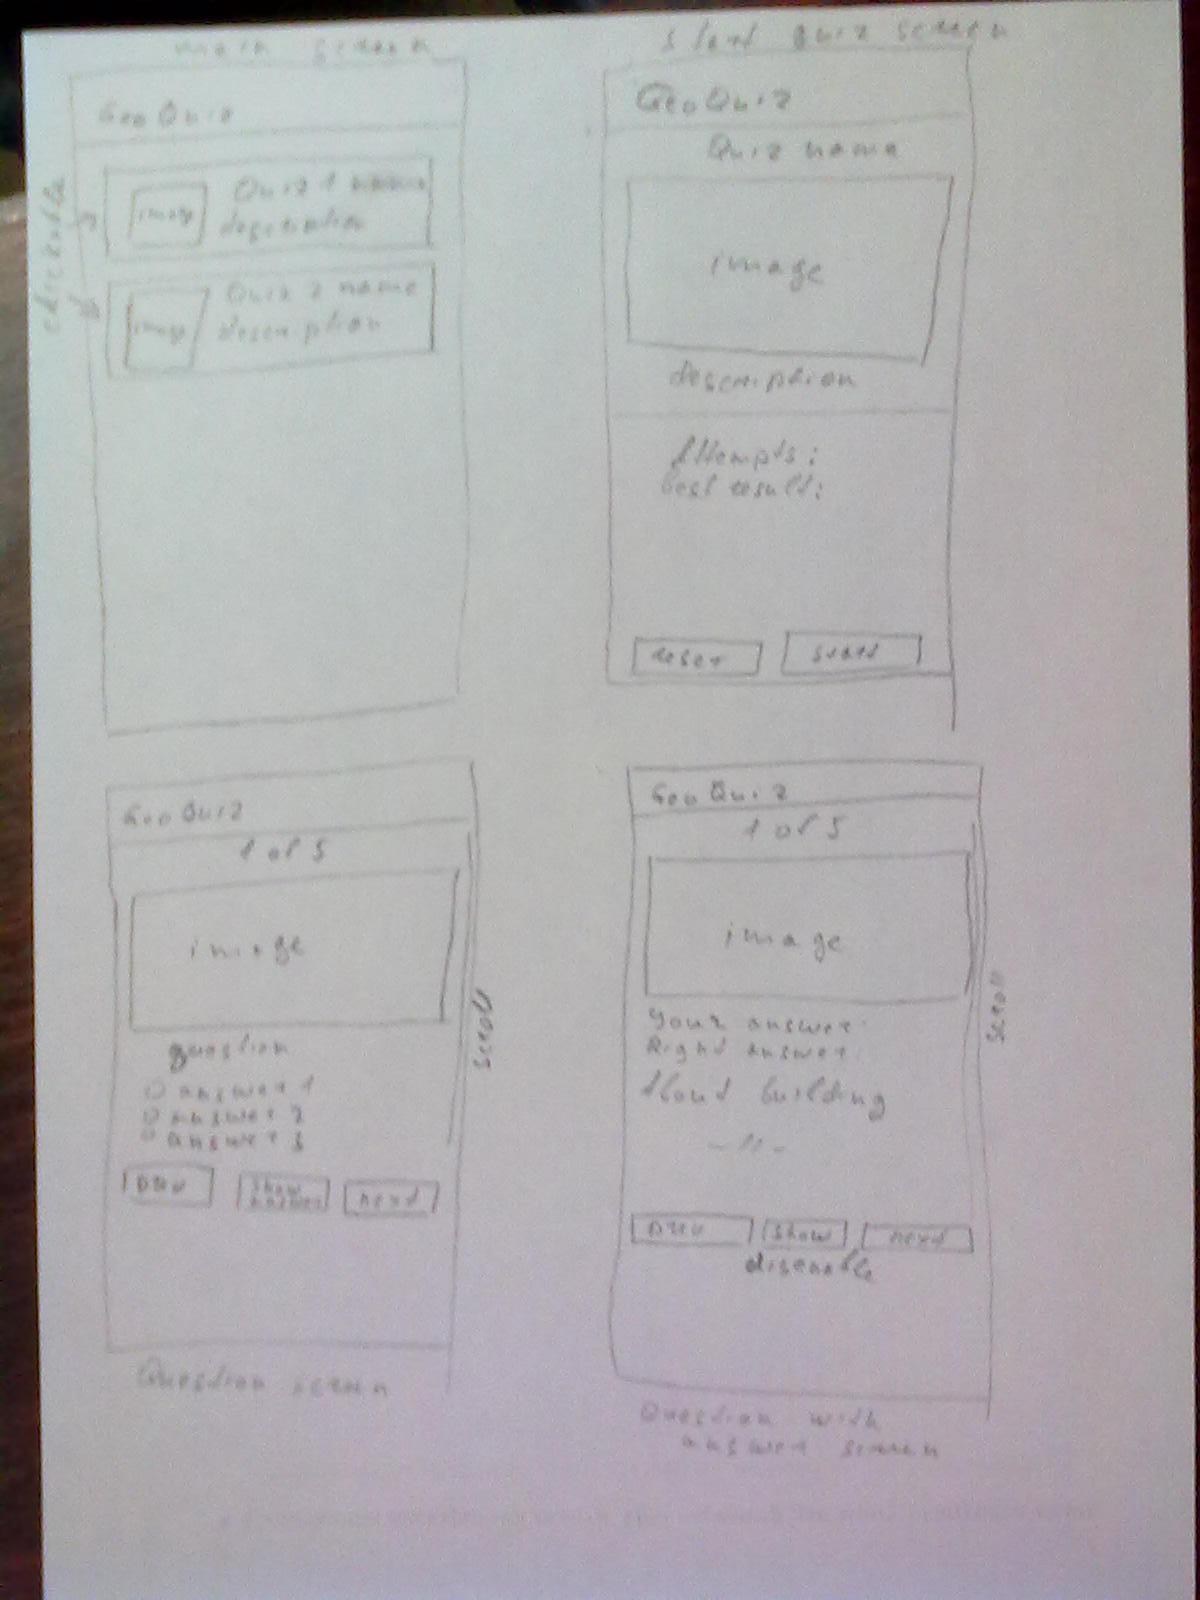 main screen
GeoQuiz
clickable
image
Quiz 1 name
description
image
Quiz 2 name
description
start quiz screen
GeoQuiz
Quiz name
image
description
Attempts:
best result:
reset
start
GeoQuiz
1 of 5
image
question
answer 1
answer 2
answer 3
prev
show
answer
next
scroll
Question screen
GeoQuiz
1 of 5
image
Your answer:
Right answer:
About building
-//-
prev
show
next
disenable
scroll
Question with
answer screen